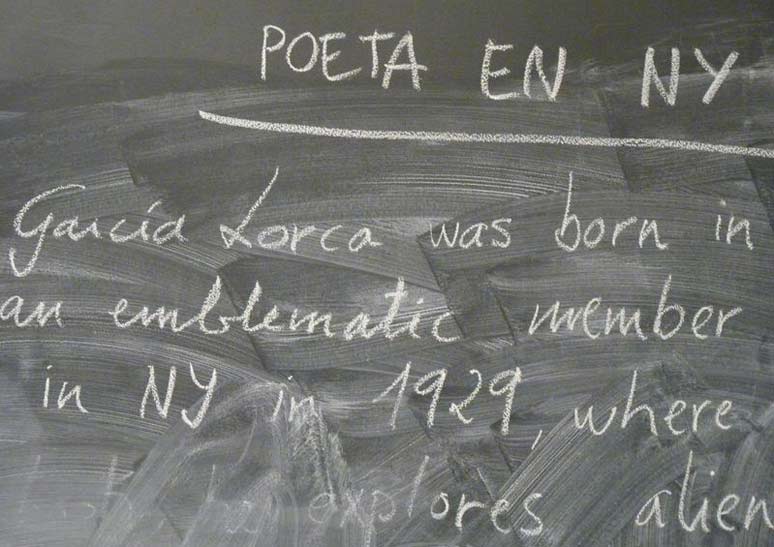 POETA EN NY
García Lorca was born in
an emblematic member
in NY in 1929, where
explores alien